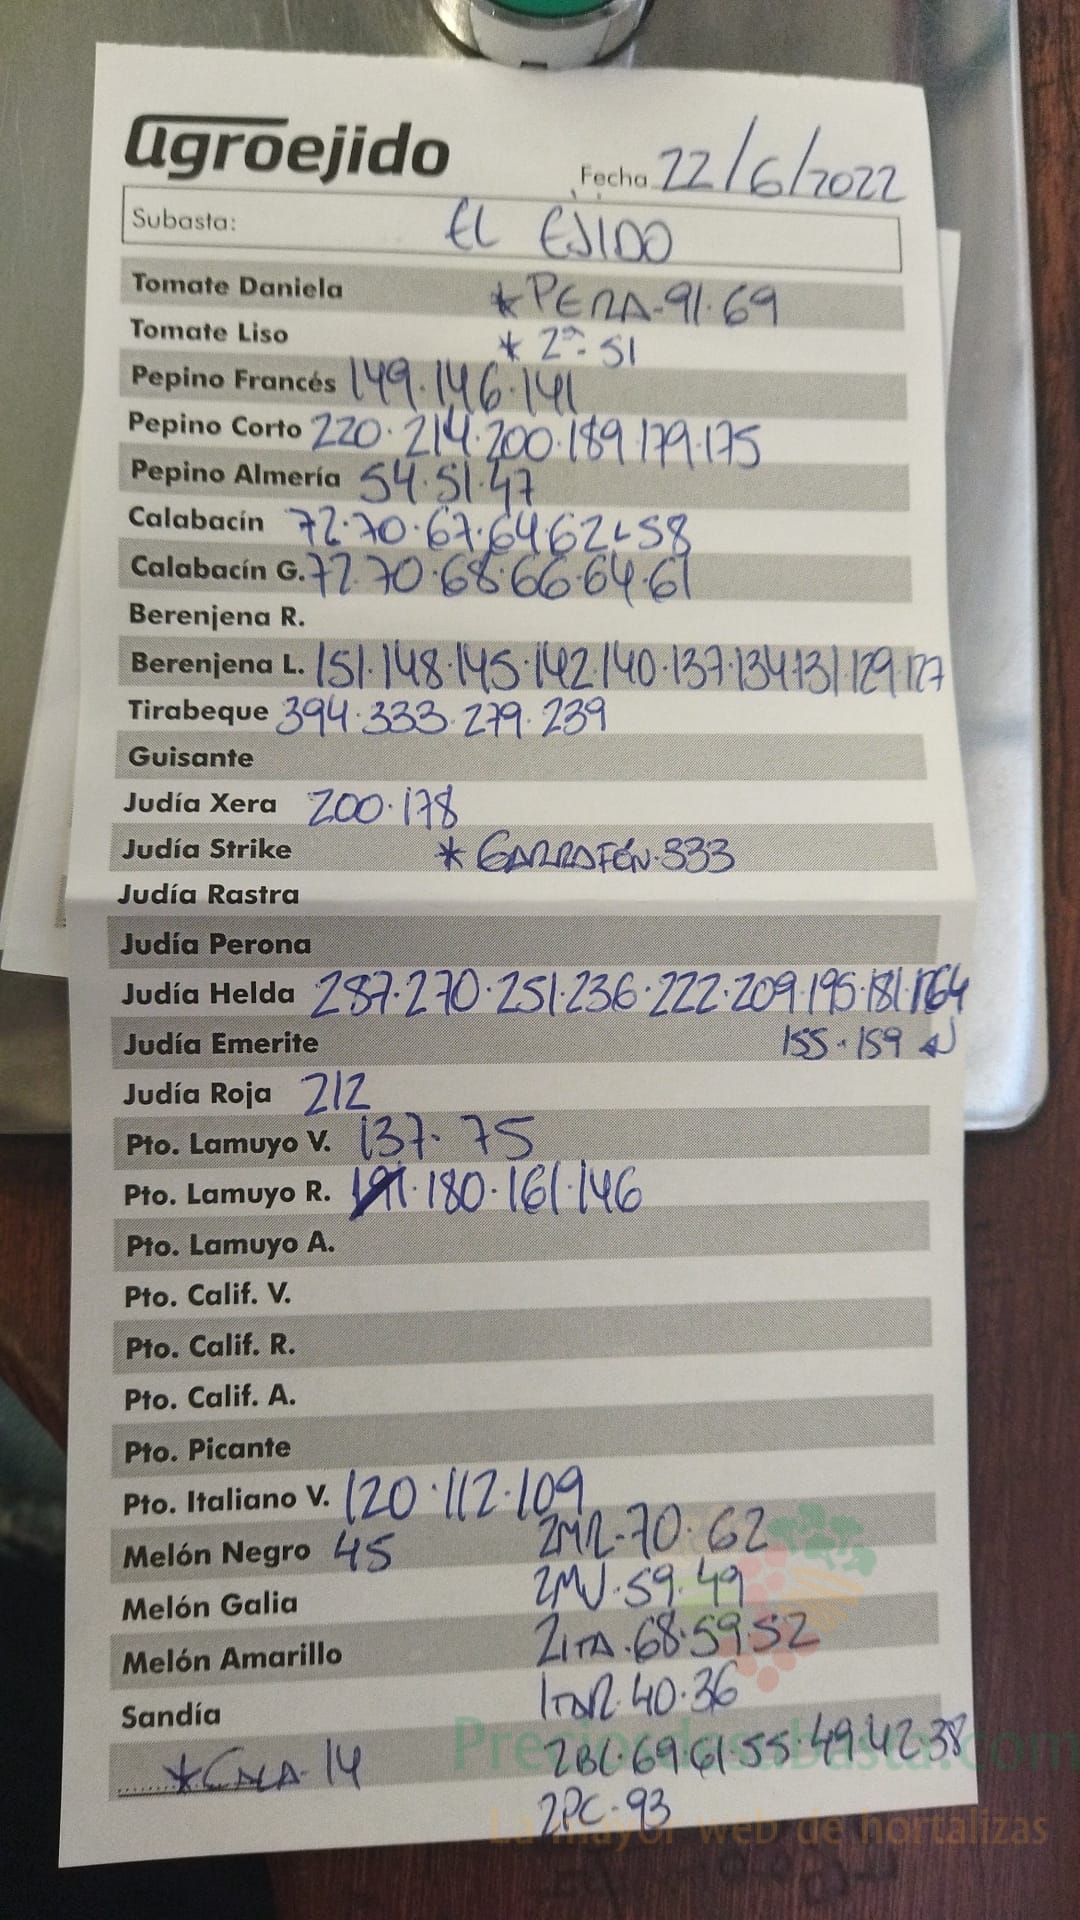 agroejido
Fecha 22/6/2022
Subasta: EL EJIDO
Tomate Daniela * PERA-91.69
Tomate Liso * 2ª- 51
Pepino Francés 149.146.141
Pepino Corto 220.214.200.189.179.175
Pepino Almería 54.51.47
Calabacín 72.70.67.64.62 58
Calabacín G. 72.70.68.66.64.61
Berenjena R.
Berenjena L. 151.148.145.142.140.137.134.131.129.127
Tirabeque 394.333.279.239
Guisante
Judía Xera 200.178
Judía Strike * GARRAFÓN.333
Judía Rastra
Judía Perona
Judía Helda 287.270.251.236.222.209.195.181. 164
Judía Emerite 155.159
Judía Roja 212
Pto. Lamuyo V. 137.75
Pto. Lamuyo R. 191.180.161.146
Pto. Lamuyo A.
Pto. Calif. V.
Pto. Calif. R.
Pto. Calif. A.
Pto. Picante
Pto. Italiano V. 120.112.109
Melón Negro 45 2MR-70.62
Melón Galia 2MV.59.49
Melón Amarillo 2ITA.68.59.52
Sandía 1TAR.40.36
* CALA-14 2BL.69.61.55.49.42.38
2PC-93
Preciosdesubasta.com
La mayor web de hortalizas